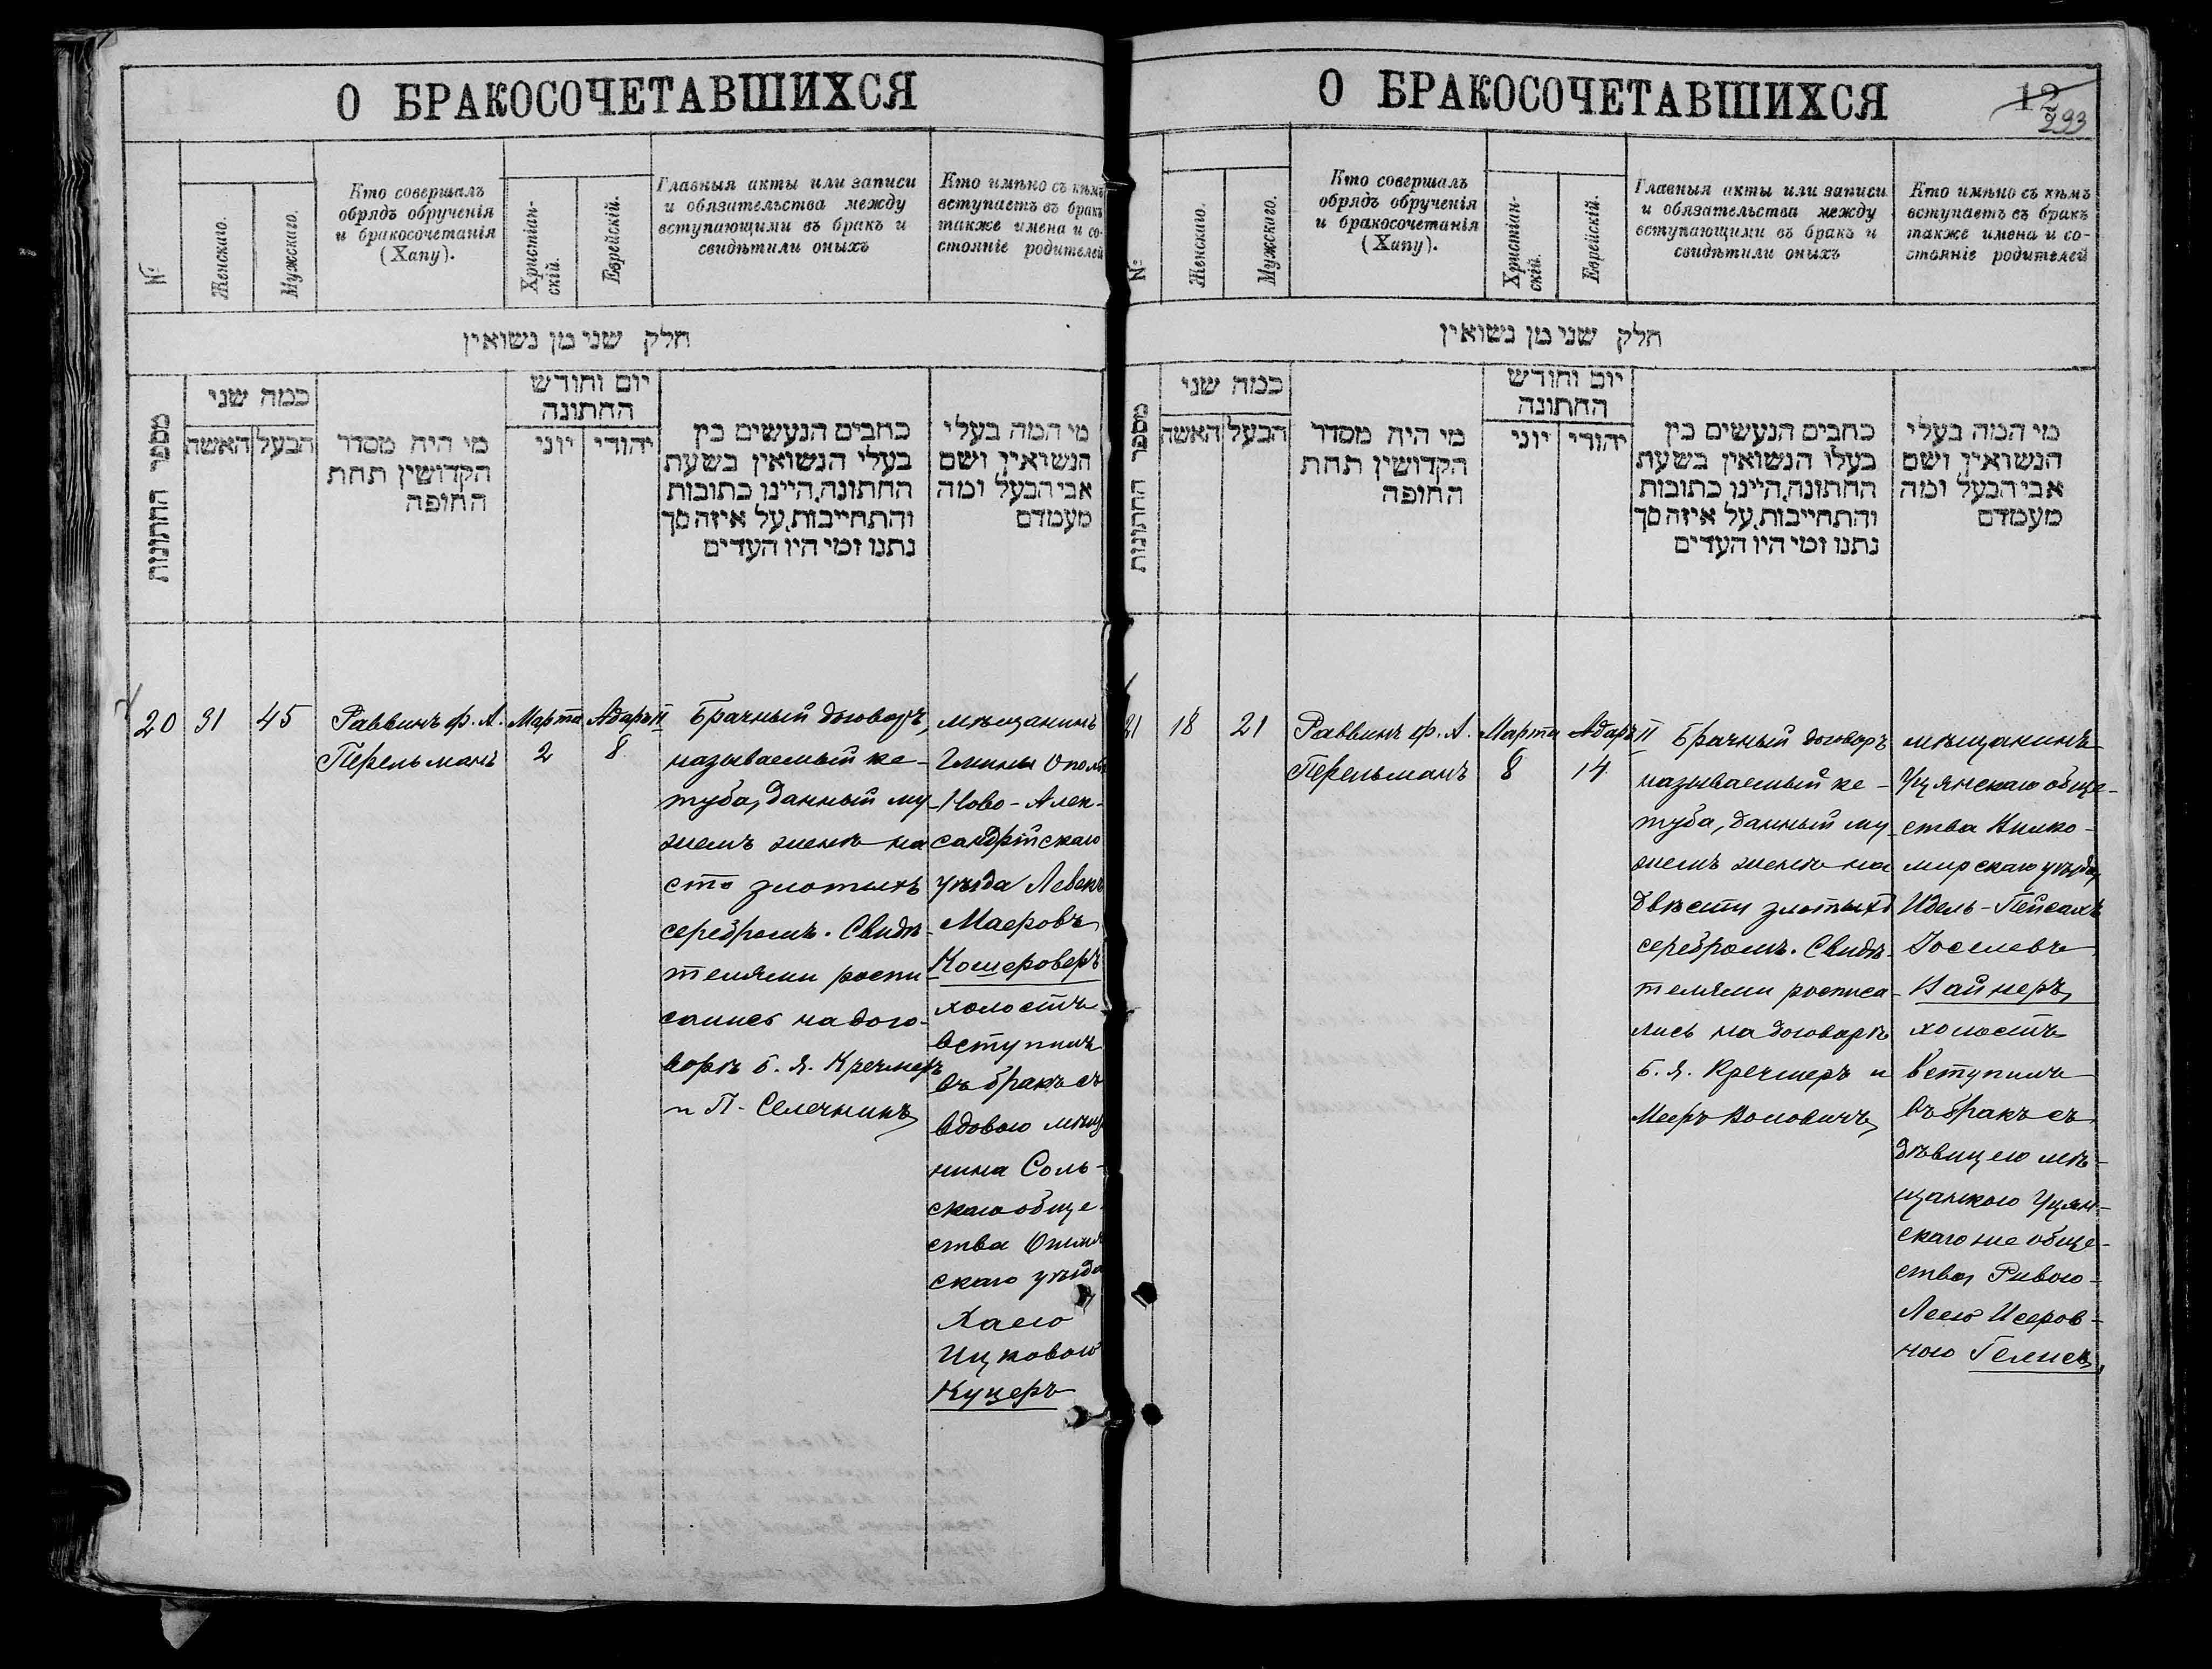 О БРАКОСОЧЕТАВШИХСЯ
№
Женскаго.
Мужскаго.
Кто совершалъ
обрядъ обрученія
и бракосочетанія
(Хапу).
Христіан-
скій.
Еврейскій.
Главныя акты или записи
и обязательства между
вступающими въ бракъ и
свидѣтили оныхъ
Кто имѣно съ кѣмъ
вступаетъ въ бракъ
также имена и со-
стояніе родителей
חלק שני מן נשואין
מספר החתונות
כמה שני
האשה
הבעל
מי היה מסדר
הקדושין תחת
החופה
יום וחודש
החתונה
יוני
יהודי
כתבים הנעשים בין
בעלי הנשואין בשעת
החתונה.היינו כתובות
והתחייבות.על איזה סך
נתנו ומי היו העדים
מי המה בעלי
הנשואין ושם
אבי הבעל ומה
מעמדם
20
31
45
Раввинъ Ф. А.
Перельманъ
Марта
2
Адаръ II
8
Брачный договоръ,
называемый ке-
туба, данный му-
жемъ женѣ на
сто злотыхъ
серебромъ. Свидѣ-
телями роспи-
сались на дого-
ворѣ Б. Я. Кремеръ
и П. Селечникъ
мѣщанинъ
Гмины Ополе
Ново-Алек-
сандрійскаго
уѣзда Лебенъ
Маеровъ
Кошероверъ
холостъ
вступилъ
въ бракъ съ
вдовою мѣща
нина Соль-
скаго обще-
ства Ошмя
скаго уѣзда
Хаею
Ицковою
Куцеръ
О БРАКОСОЧЕТАВШИХСЯ
12
293
№
Женскаго.
Мужскаго.
Кто совершалъ
обрядъ обрученія
и бракосочетанія
(Хапу).
Христіан-
скій.
Еврейскій.
Главныя акты или записи
и обязательства между
вступающими въ бракъ и
свидѣтили оныхъ
Кто имѣно съ кѣмъ
вступаетъ въ бракъ
также имена и со-
стояніе родителей
חלק שני מן נשואין
מספר החתונות
כמה שני
האשה
הבעל
מי היה מסדר
הקדושין תחת
החופה
יום וחודש
החתונה
יוני
יהודי
כתבים הנעשים בין
בעלו הנשואין בשעת
החתונה.היינו כתובות
והתחייבות.על איזה סך
נתנו ומי היו העדים
מי המה בעלי
הנשואין ושם
אבי הבעל ומה
מעמדם
21
18
21
Раввинъ Ф. А.
Перельманъ
Марта
8
Адаръ II
14
Брачный договоръ
называемый ке-
туба, данный му-
жемъ женѣ на
двѣсти злотыхъ
серебромъ. Свидѣ-
телями росписа-
лись на договорѣ
Б. Я. Кремеръ и
Мееръ Воловичъ
мѣщанинъ
Уцянскаго обще-
ства Вилко-
мирскаго уѣзда,
Идель-Пейсахъ
Іоселевъ
Вайнеръ
холостъ
вступилъ
въ бракъ съ
дѣвицею мѣ-
щанкою Уцян-
скаго же обще-
ства, Ривою-
Леею Исеров-
ною Гелисъ